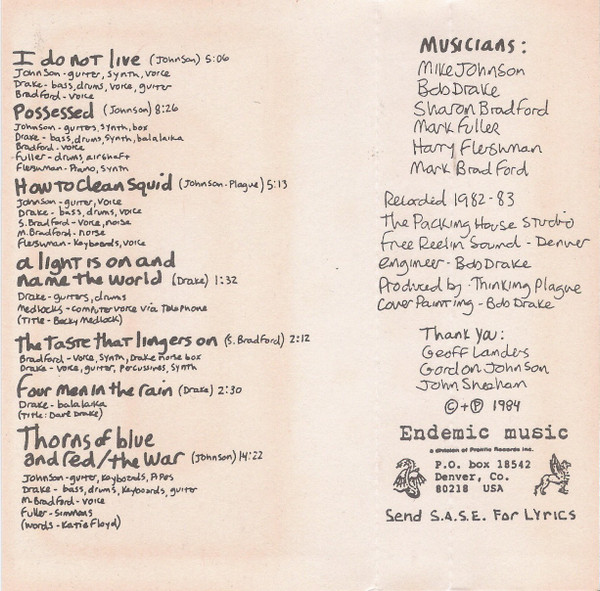 I do not live (Johnson) 5:06
Johnson - guiter, synth, voice
Drake - bass, drums, voice, guiter
Bradford - voice
Possessed (Johnson) 8:26
Johnson - guiters, synth, box
Drake - bass, drums, synth, balalaika
Bradford - voice
Fuller - drums, airshaft
Fleishman - Piano, synth
How to clean squid (Johnson-Plague) 5:13
Johnson - guiter, voice
Drake - bass, drums, voice
S. Bradford - voice, noise
M. Bradford - noise
Fleishman - keyboards, voice
a light is on and
name the world (Drake) 1:32
Drake - guiters, drums
Medlocks - computer voice via telephone
(Title - Becky Medlock)
The taste that lingers on (S. Bradford) 2:12
Bradford - voice, synth, Drake noise box
Drake - voice, guiter, percussines, synth
Four men in the rain (Drake) 2:30
Drake - balalaika
(Title: Dave Drake)
Thorns of blue
and red/the war (Johnson) 14:22
Johnson - guiter, keyboards, Pipes
Drake - bass, drums, keyboards, guiter
M. Bradford - voice
Fuller - simmons
(words - Katie Floyd)
Musicians:
Mike Johnson
Bob Drake
Sharon Bradford
Mark Fuller
Harry Fleishman
Mark Bradford
Recorded 1982-83
The Packing House Studio
Free Reelin' Sound - Denver
engineer - Bob Drake
Produced by - Thinking Plague
Cover Painting - Bob Drake
Thank You:
Geoff Landers
Gordon Johnson
John Sheeham
©+℗ 1984
Endemic music
a division of Prolific Records Inc.
P.O. box 18542
Denver, Co.
80218 USA
Send S.A.S.E. For Lyrics